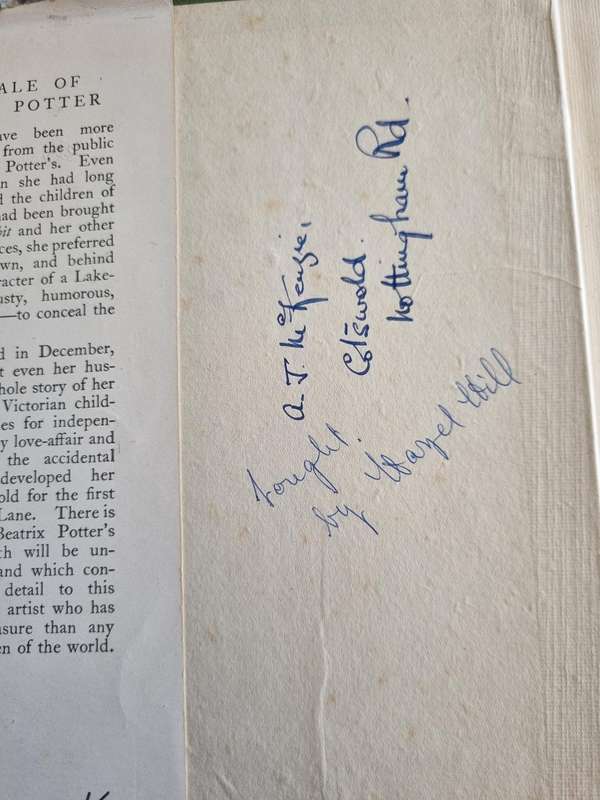 ALE OF
POTTER
ave been more
from the public
Potter's. Even
n she had long
d the children of
had been brought
bit and her other
ces, she preferred
wn, and behind
racter of a Lake-
usty, humorous,
—to conceal the
d in December,
t even her hus-
hole story of her
Victorian child-
es for indepen-
y love-affair and
the accidental
developed her
old for the first
Lane. There is
Beatrix Potter's
ch will be un-
and which con-
detail to this
artist who has
asure than any
en of the world.
A. J. McKenzie,
Cotswold.
Nottingham Rd.
by Hazel Hill